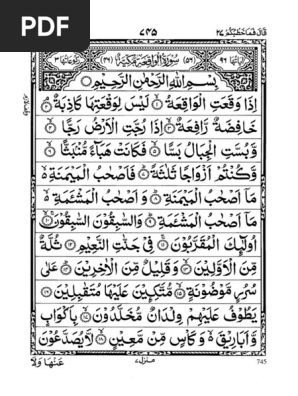 PDF
قال فما خطبكم ٢٧
٧٤٥
اٰیاتها ٩٦ (٥٦) سُوْرَةُ الْوَاقِعَةِ مَكِّيَّةٌ (٤٦) رکوعاتها ٣
بِسْمِ اللهِ الرَّحْمٰنِ الرَّحِيْمِ
اِذَا وَقَعَتِ الْوَاقِعَةُ ۙ۱ لَيْسَ لِوَقْعَتِهَا كَاذِبَةٌ ۘ۲
خَافِضَةٌ رَّافِعَةٌ ۙ۳ اِذَا رُجَّتِ الْاَرْضُ رَجًّا ۙ۴
وَّبُسَّتِ الْجِبَالُ بَسًّا ۙ۵ فَكَانَتْ هَبَآءً مُّنْۢبَثًّا ۙ۶
وَّكُنْتُمْ اَزْوَاجًا ثَلٰثَةً ؕ۷ فَاَصْحٰبُ الْمَيْمَنَةِ ۙ۬
مَاۤ اَصْحٰبُ الْمَيْمَنَةِ ؕ۸ وَاَصْحٰبُ الْمَشْـَٔمَةِ ۙ۬
مَاۤ اَصْحٰبُ الْمَشْـَٔمَةِ ؕ۹ وَالسّٰبِقُوْنَ السّٰبِقُوْنَ ۚۙ۱۰
اُولٰٓئِكَ الْمُقَرَّبُوْنَ ۚ۱۱ فِيْ جَنّٰتِ النَّعِيْمِ ۱۲ ثُلَّةٌ
مِّنَ الْاَوَّلِيْنَ ۙ۱۳ وَقَلِيْلٌ مِّنَ الْاٰخِرِيْنَ ؕ۱۴ عَلٰى
سُرُرٍ مَّوْضُوْنَةٍ ۙ۱۵ مُّتَّكِـِٕيْنَ عَلَيْهَا مُتَقٰبِلِيْنَ ۱۶
يَطُوْفُ عَلَيْهِمْ وِلْدَانٌ مُّخَلَّدُوْنَ ۙ۱۷ بِاَكْوَابٍ
وَّاَبَارِيْقَ ۙ۬ وَكَاْسٍ مِّنْ مَّعِيْنٍ ۙ۱۸ لَّا يُصَدَّعُوْنَ
منزل ٧
عَنْهَا وَلَا
745